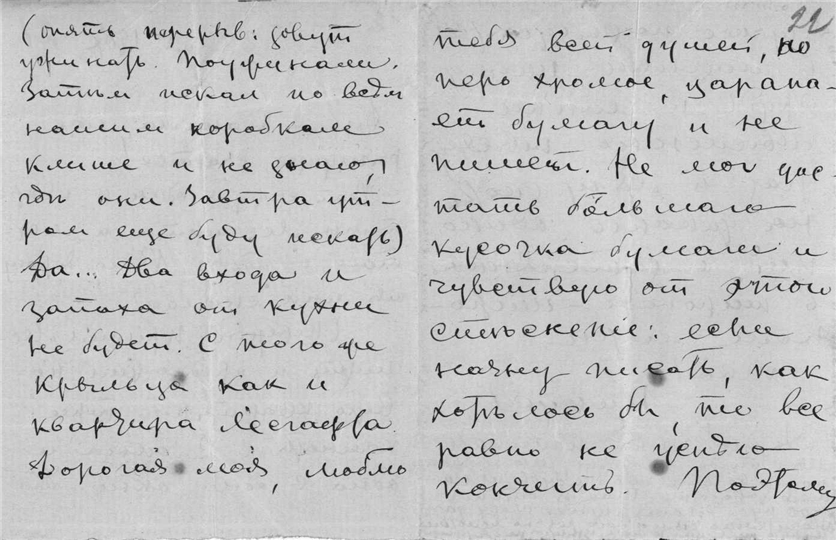 (опять перерыв: зовут
ужинать. Поужинали.
Затѣм искал по всѣм
нашим коробкам
клише и не знаю,
гдѣ они. Завтра ут-
ром еще буду искать)
Да... Два входа и
запаха от кухни
не будет. С того же
крыльца как и
квартира Лесгафта.
Дорогая моя, люблю
22
тебя всей душей, но
перо хромое, царапа-
ет бумагу и не
пишет. Не мог дос-
тать бо́льшаго
кусочка бумаги и
чувствую от этого
стѣсненіе: если
начну писать, как
хотѣлось бы, то все
равно не успѣю
кончить. Поэтому